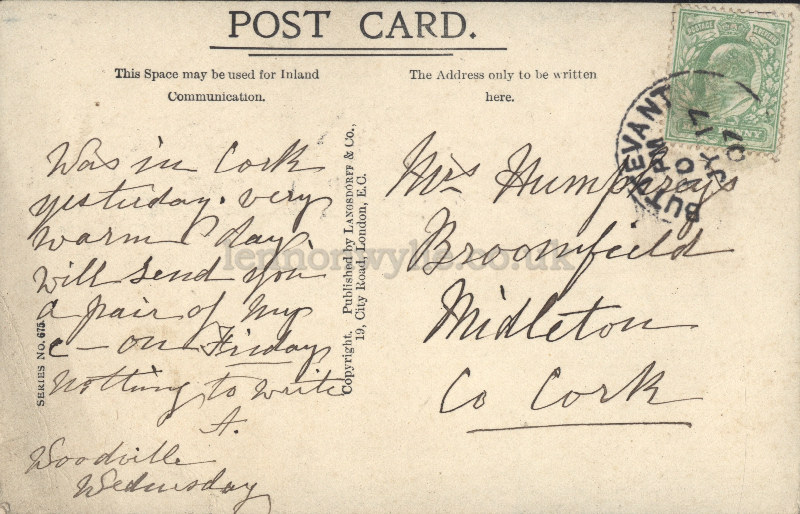 POST CARD.
This Space may be used for Inland
Communication.
The Address only to be written
here.
POSTAGE
PENNY
BUTTEVANT
PM
JY 17
07
Was in Cork
yesterday. very
warm day
will send you
a pair of my
c — on Friday
Nothing to write
A.
Woodville
Wednesday
SERIES NO. 675.
Copyright. Published by LANGSDORFF & Co.,
19, City Road, London, E.C.
Mrs Humphreys
Broomfield
Midleton
Co Cork
lennonwylie.co.uk